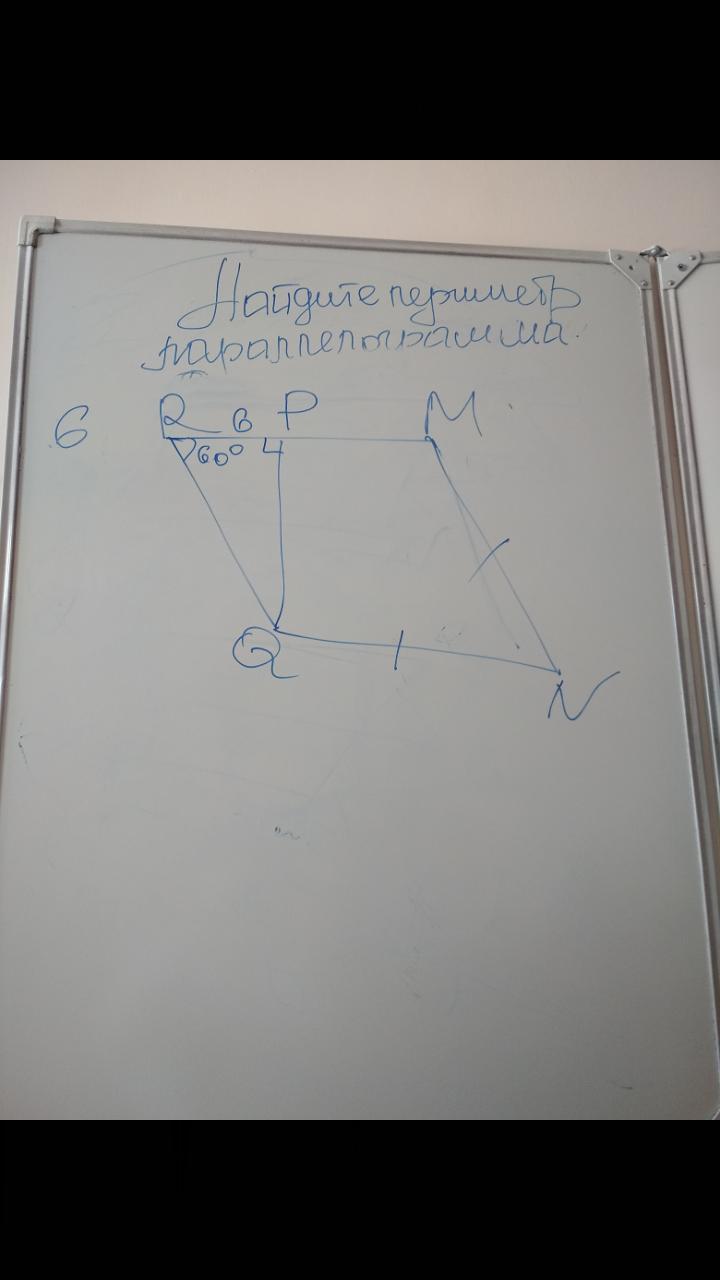 Найдите периметр
параллелограмма.
6
R 6 P M
60°
Q
N